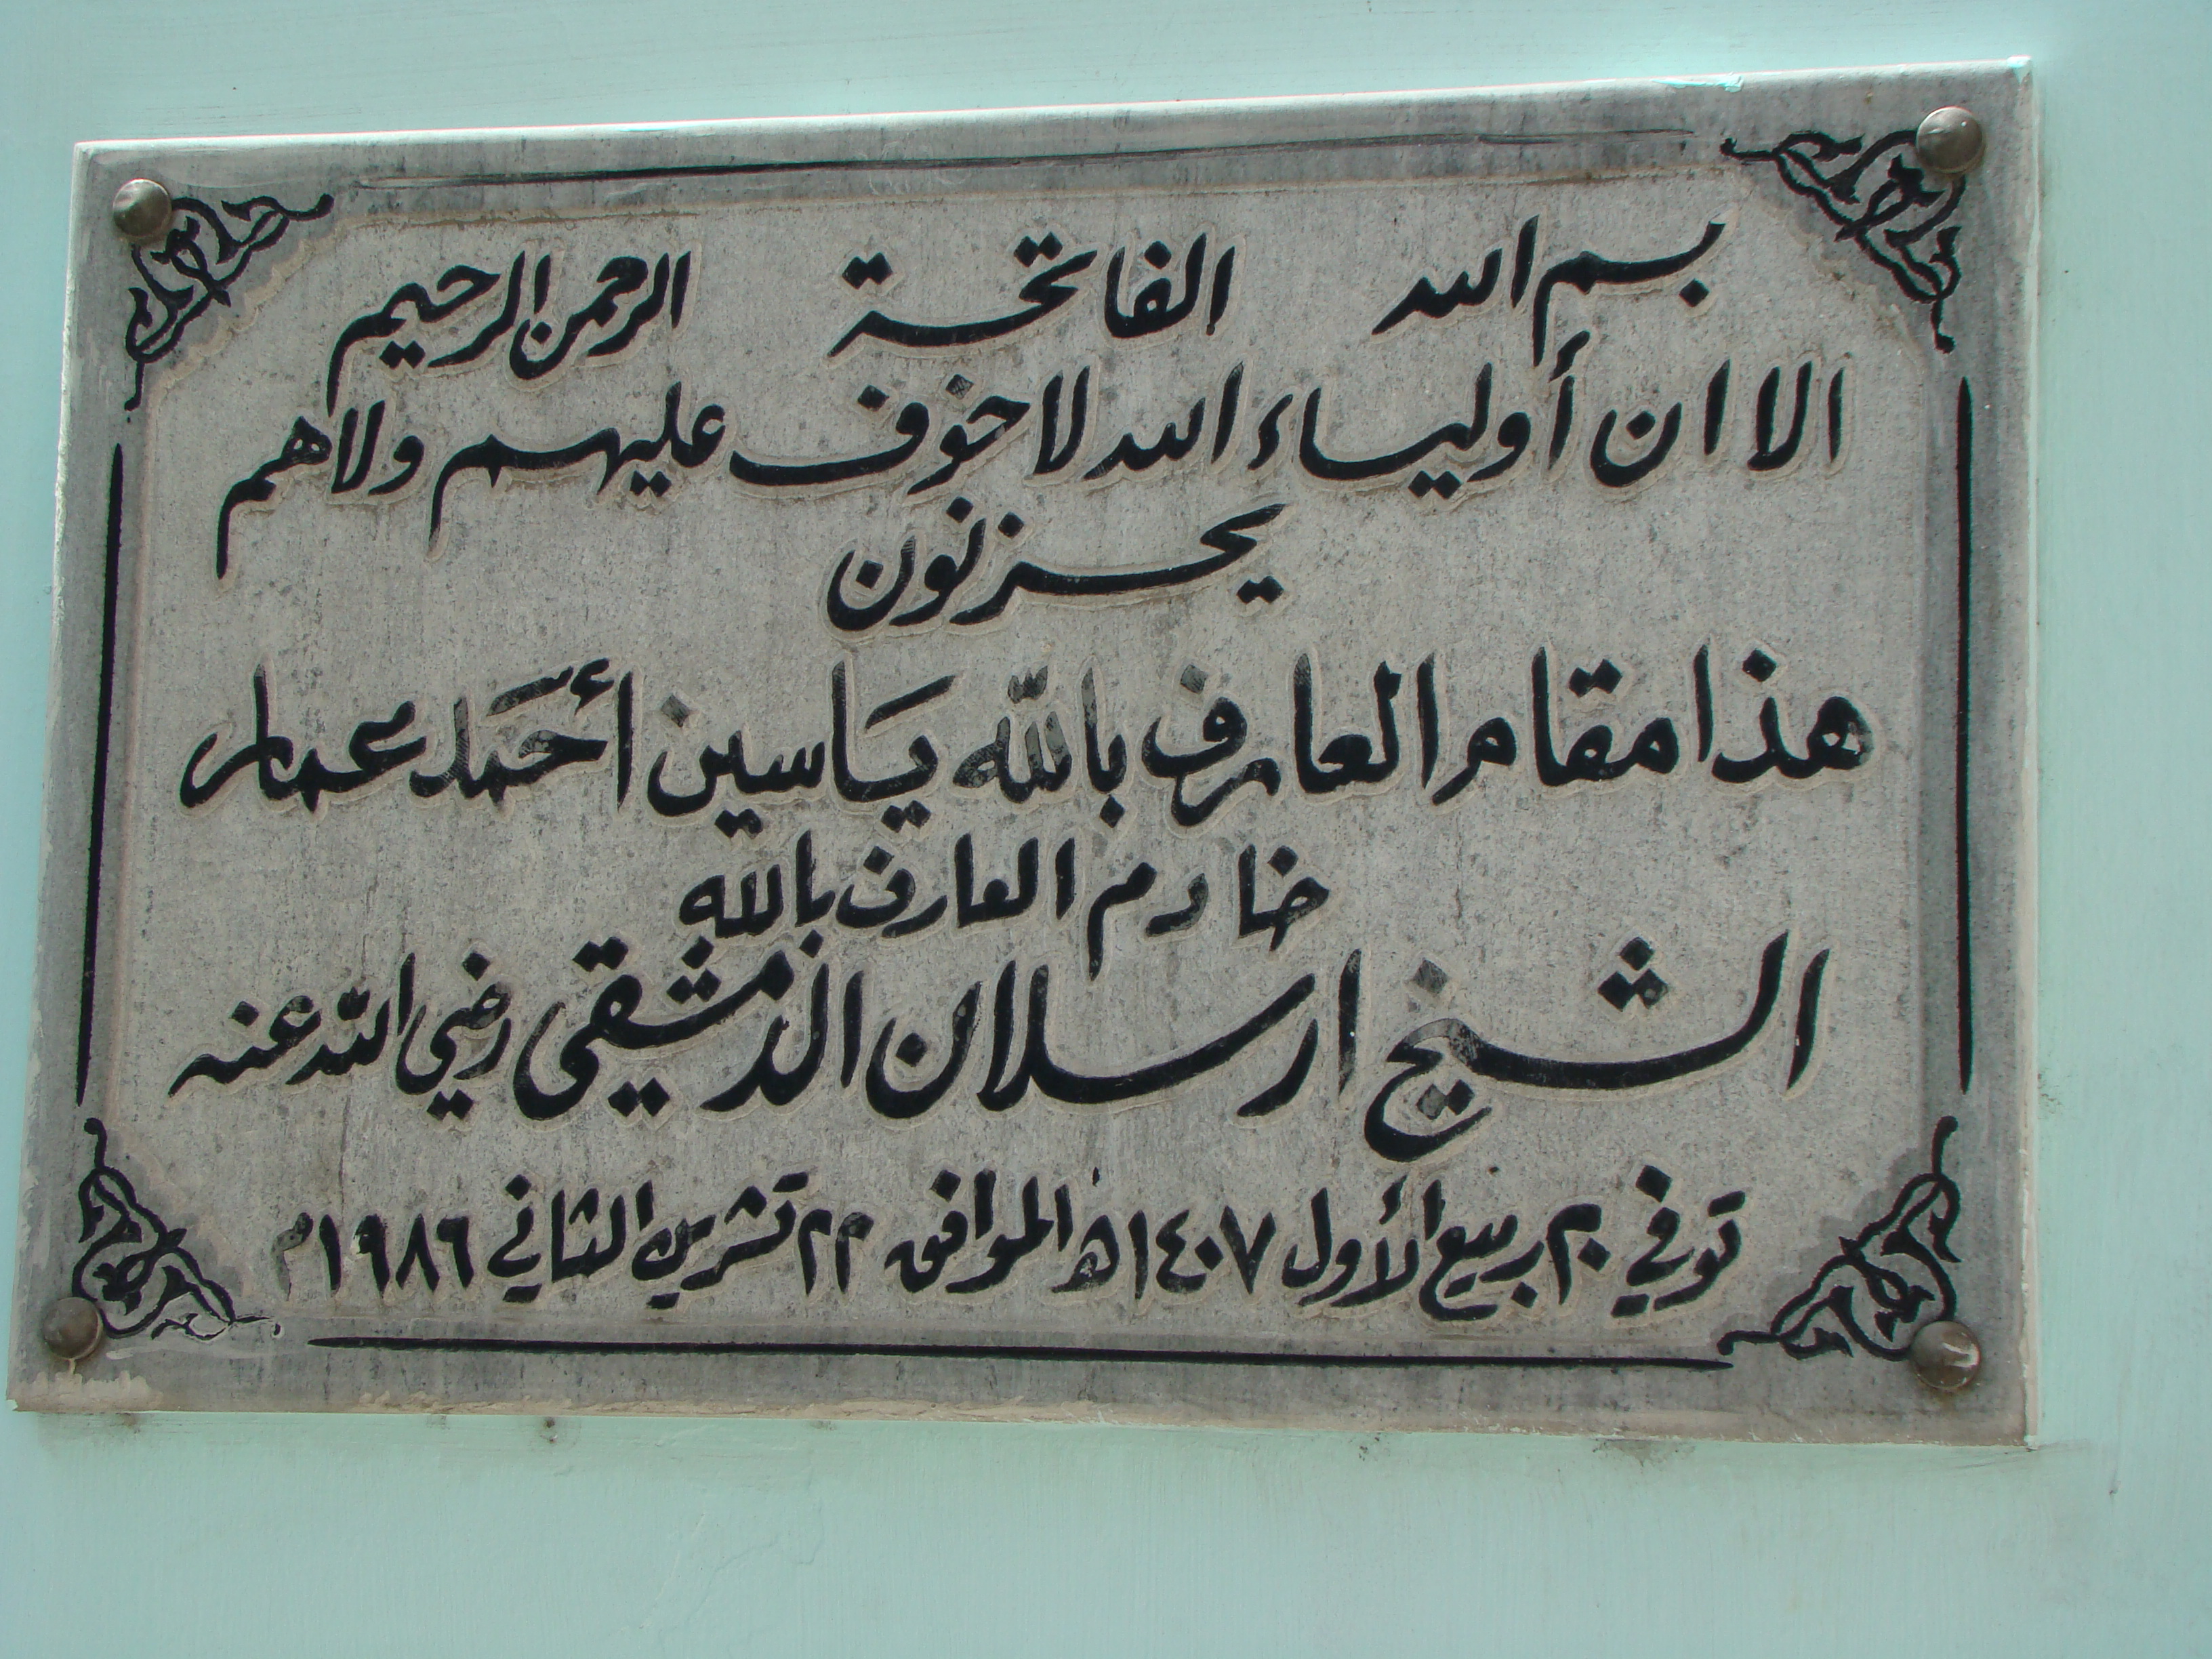 بسم الله الفاتحة الرحمن الرحيم
الا ان أولياء الله لا خوف عليهم ولا هم
يحزنون
هذا مقام العارف بالله ياسين أحمد عمار
خادم العارف بالله
الشيخ ارسلان الدمشقي رضي الله عنه
توفي ٢٠ ربيع الأول ١٤٠٧ه الموافق ٢٢ تشرين الثاني ١٩٨٦م